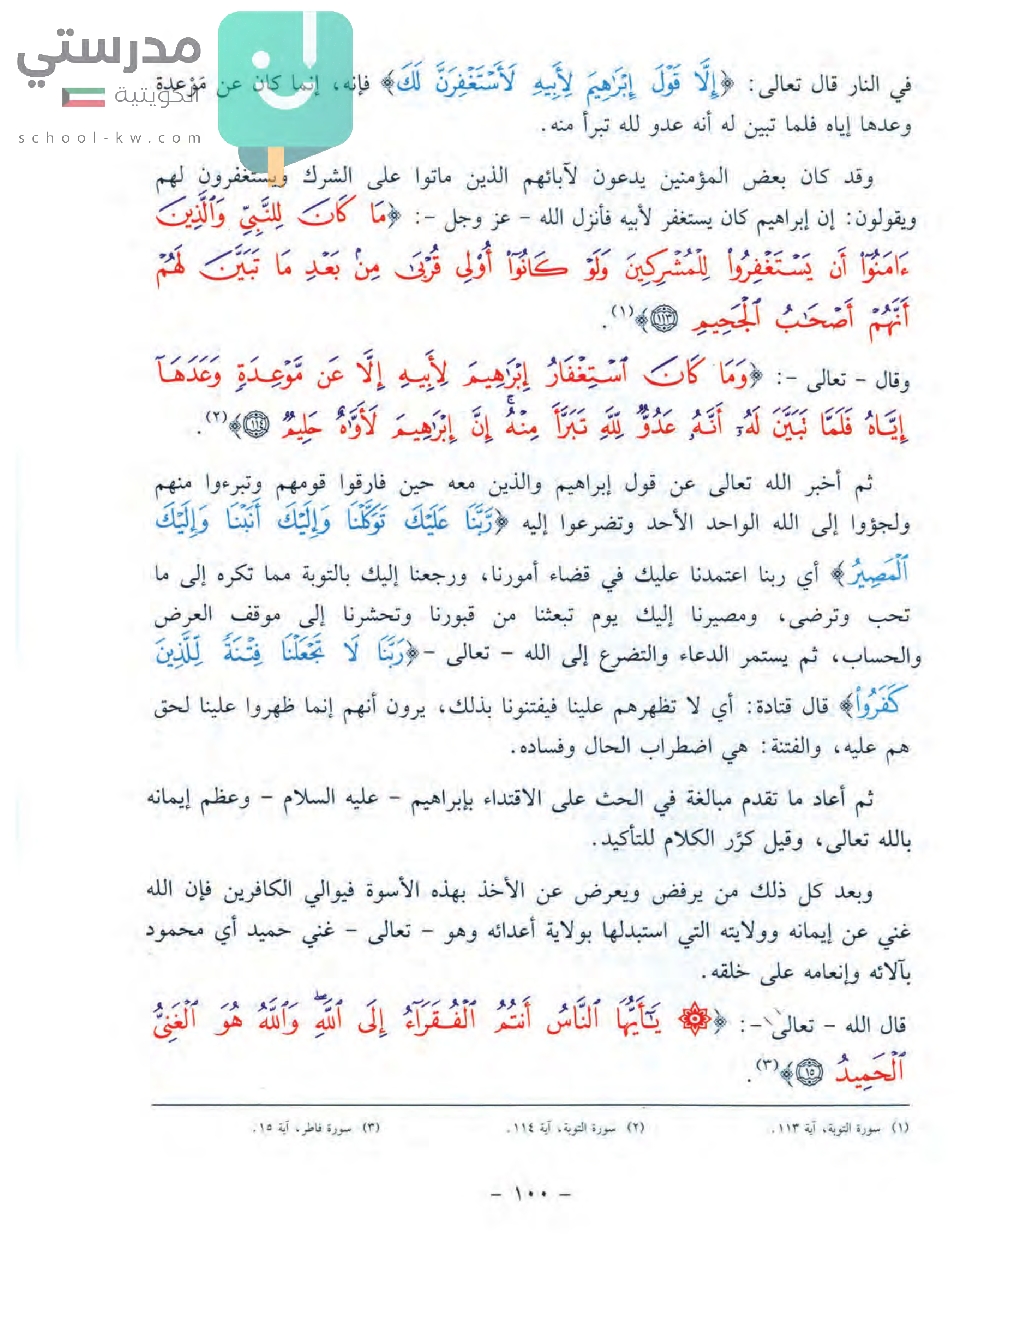 مدرستي
الكويتية
school-kw.com
في النار قال تعالى: ﴿إِلَّا قَوْلَ إِبْرَٰهِيمَ لِأَبِيهِ لَأَسْتَغْفِرَنَّ لَكَ﴾ فإنه، إنما كان عن مَوْعدة
وعدها إياه فلما تبين له أنه عدو لله تبرأ منه.
وقد كان بعض المؤمنين يدعون لآبائهم الذين ماتوا على الشرك ويستغفرون لهم
ويقولون: إن إبراهيم كان يستغفر لأبيه فأنزل الله - عز وجل -: ﴿مَا كَانَ لِلنَّبِيِّ وَٱلَّذِينَ
ءَامَنُوٓاْ أَن يَسْتَغْفِرُواْ لِلْمُشْرِكِينَ وَلَوْ كَانُوٓاْ أُوْلِى قُرْبَىٰ مِنۢ بَعْدِ مَا تَبَيَّنَ لَهُمْ
أَنَّهُمْ أَصْحَٰبُ ٱلْجَحِيمِ ١١٣﴾(١).
وقال - تعالى -: ﴿وَمَا كَانَ ٱسْتِغْفَارُ إِبْرَٰهِيمَ لِأَبِيهِ إِلَّا عَن مَّوْعِدَةٍ وَعَدَهَآ
إِيَّاهُ فَلَمَّا تَبَيَّنَ لَهُۥٓ أَنَّهُۥ عَدُوٌّ لِّلَّهِ تَبَرَّأَ مِنْهُۚ إِنَّ إِبْرَٰهِيمَ لَأَوَّٰهٌ حَلِيمٌ ١١٤﴾(٢).
ثم أخبر الله تعالى عن قول إبراهيم والذين معه حين فارقوا قومهم وتبرءوا منهم
ولجؤوا إلى الله الواحد الأحد وتضرعوا إليه ﴿رَّبَّنَا عَلَيْكَ تَوَكَّلْنَا وَإِلَيْكَ أَنَبْنَا وَإِلَيْكَ
ٱلْمَصِيرُ﴾ أي ربنا اعتمدنا عليك في قضاء أمورنا، ورجعنا إليك بالتوبة مما تكره إلى ما
تحب وترضى، ومصيرنا إليك يوم تبعثنا من قبورنا وتحشرنا إلى موقف العرض
والحساب، ثم يستمر الدعاء والتضرع إلى الله - تعالى -﴿رَبَّنَا لَا تَجْعَلْنَا فِتْنَةً لِّلَّذِينَ
كَفَرُواْ﴾ قال قتادة: أي لا تظهرهم علينا فيفتنونا بذلك، يرون أنهم إنما ظهروا علينا لحق
هم عليه، والفتنة: هي اضطراب الحال وفساده.
ثم أعاد ما تقدم مبالغة في الحث على الاقتداء بإبراهيم - عليه السلام - وعظم إيمانه
بالله تعالى، وقيل كرَّر الكلام للتأكيد.
وبعد كل ذلك من يرفض ويعرض عن الأخذ بهذه الأسوة فيوالي الكافرين فإن الله
غني عن إيمانه وولايته التي استبدلها بولاية أعدائه وهو - تعالى - غني حميد أي محمود
بآلائه وإنعامه على خلقه.
قال الله - تعالى -: ﴿۞ يَٰٓأَيُّهَا ٱلنَّاسُ أَنتُمُ ٱلْفُقَرَآءُ إِلَى ٱللَّهِۖ وَٱللَّهُ هُوَ ٱلْغَنِىُّ
ٱلْحَمِيدُ ١٥﴾(٣).
(١) سورة التوبة، آية ١١٣. (٢) سورة التوبة، آية ١١٤. (٣) سورة فاطر، آية ١٥.
- ١٠٠ -